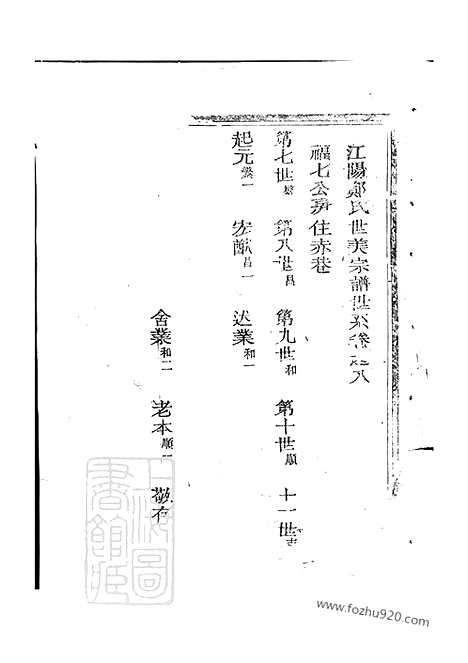 江陽鄭氏世美宗譜世系卷之八
福七公房住赤巷
第七世繁 第八世昌 第九世和 第十世順 十一世吉
起元繁一 宏猷昌一 述業和一
舍業和二 老本順一 敬存
上海圖書館藏
www.fozhu920.com